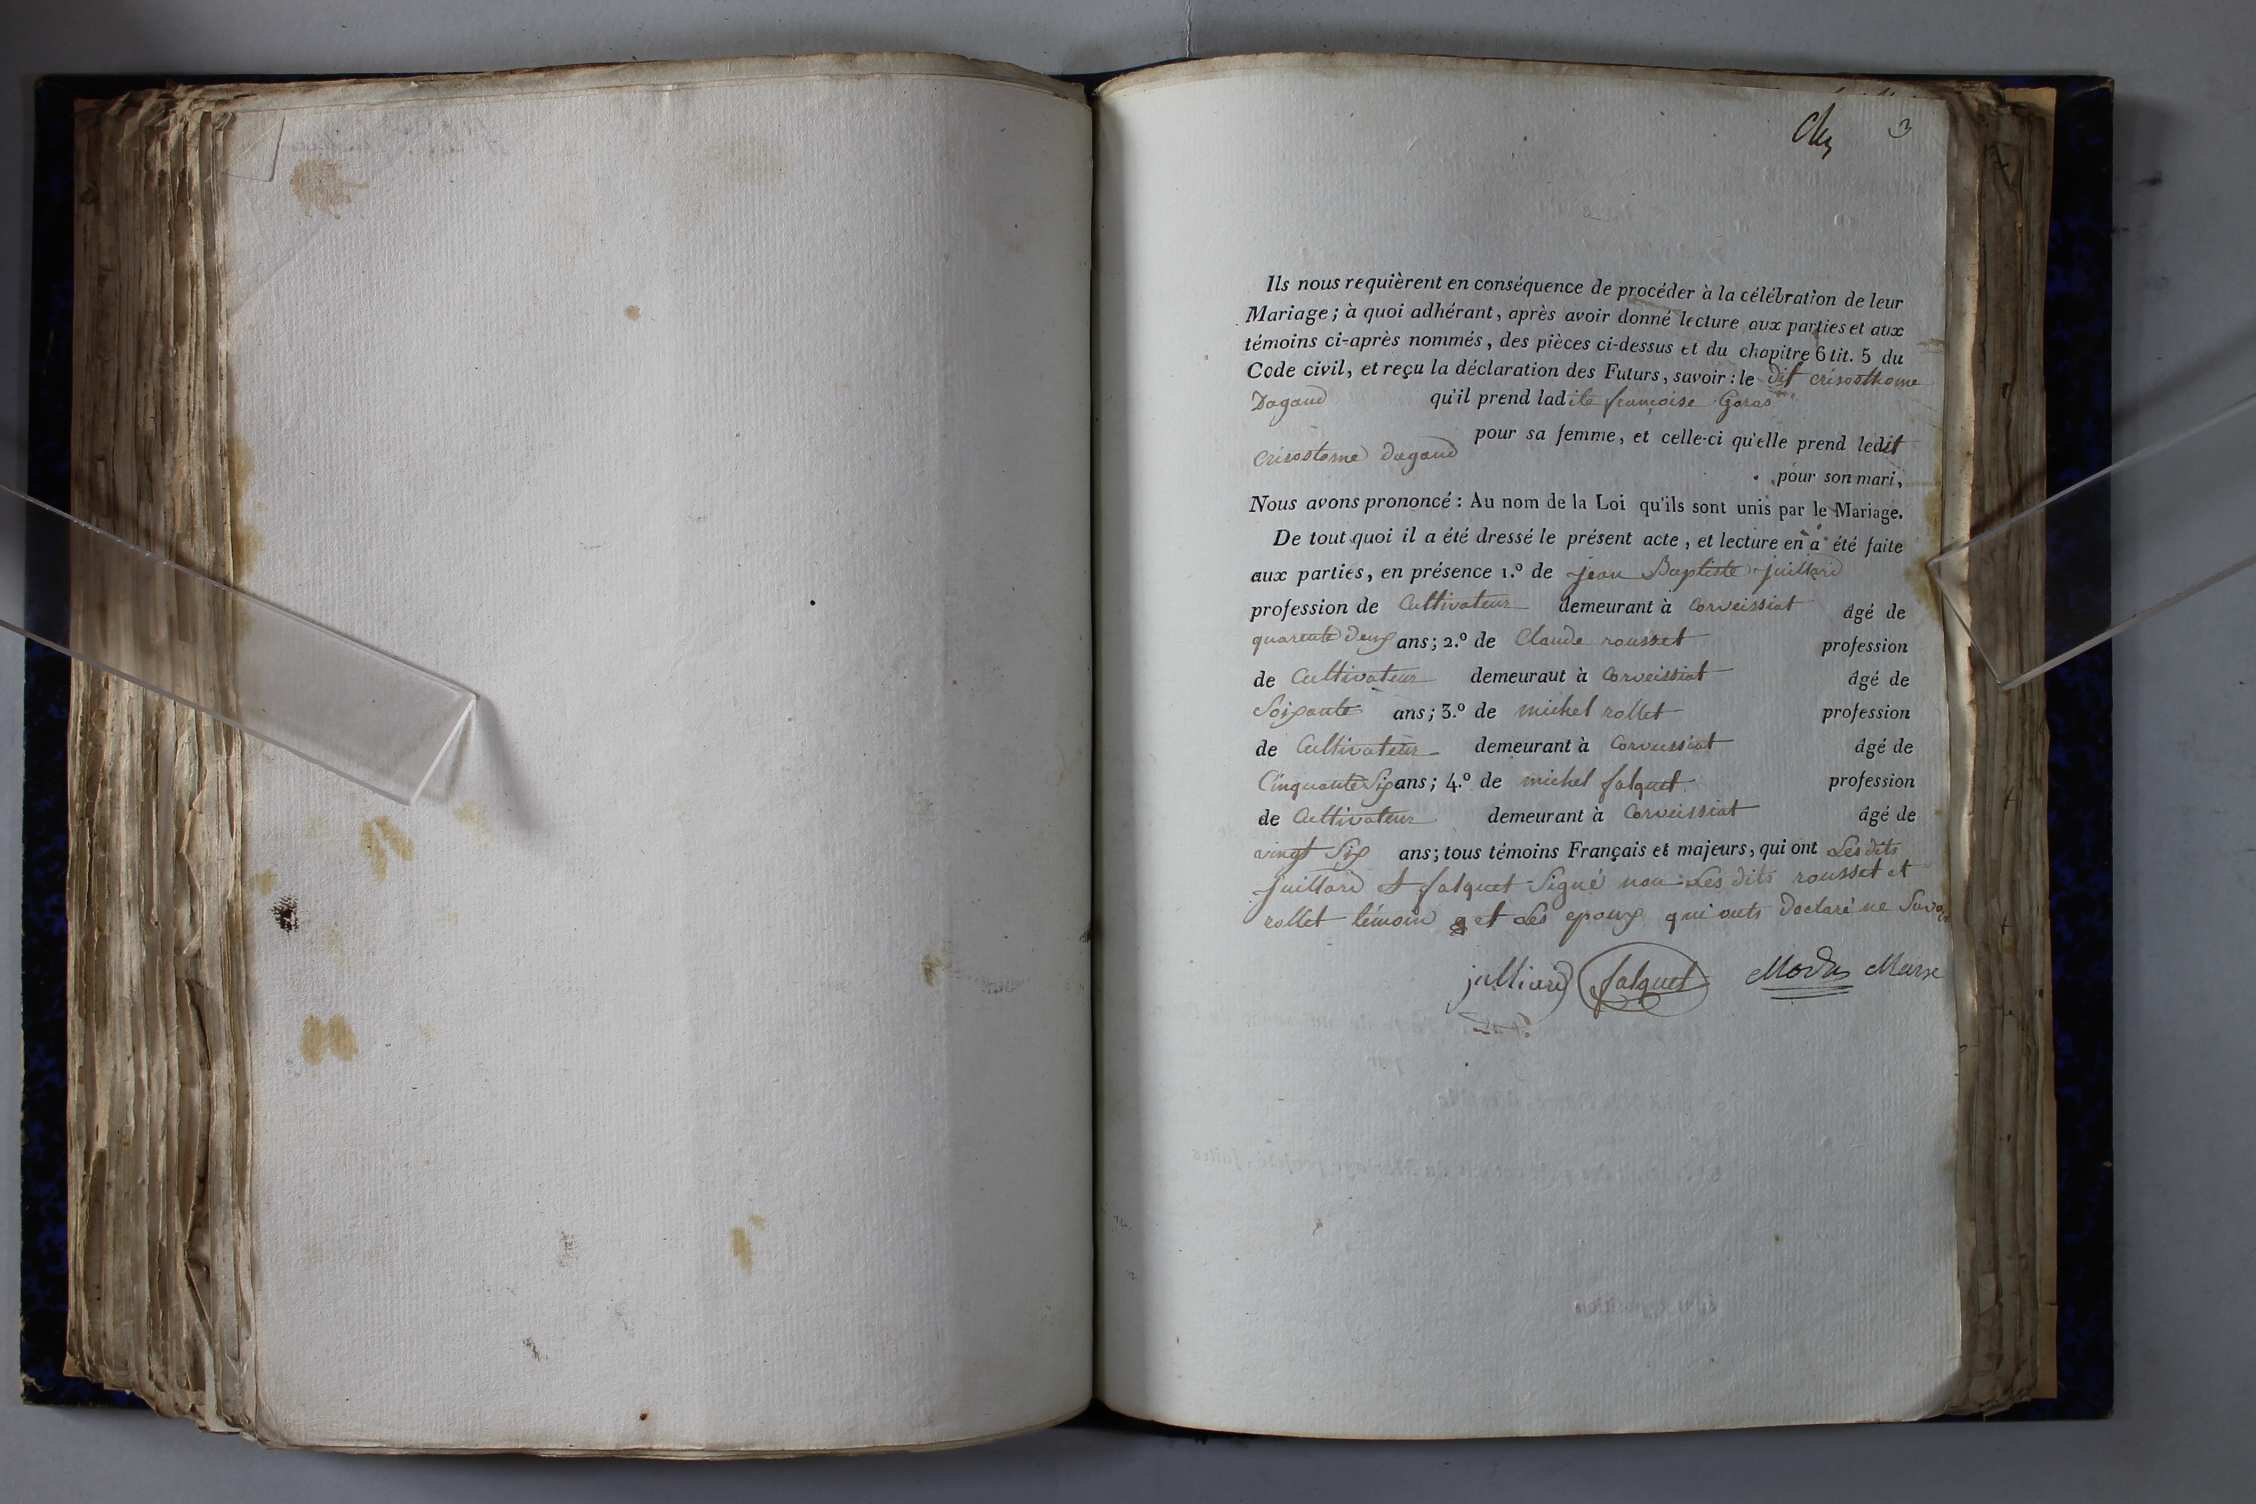 3
Ils nous requièrent en conséquence de procéder à la célébration de leur
Mariage ; à quoi adhérant, après avoir donné lecture aux parties et aux
témoins ci-après nommés, des pièces ci-dessus et du chapitre 6 tit. 5 du
Code civil, et reçu la déclaration des Futurs, savoir : le dit crisosthome
Dagaud qu'il prend ladite françoise Goras
pour sa femme, et celle-ci qu'elle prend ledit
crisostome dagaud
pour son mari,
Nous avons prononcé : Au nom de la Loi qu'ils sont unis par le Mariage.
De tout quoi il a été dressé le présent acte, et lecture en a été faite
aux parties, en présence 1.º de jean Baptiste juillard
profession de Cultivateur demeurant à Corveissiat âgé de
quarente deux ans ; 2.º de Claude rousset profession
de Cultivateur demeuraut à Corveissiat âgé de
Soixante ans ; 3.º de michel rollet profession
de Cultivateur demeurant à Corveissiat âgé de
Cinquante Six ans ; 4.º de michel falquet profession
de Cultivateur demeurant à Corveissiat âgé de
vingt Six ans ; tous témoins Français et majeurs, qui ont Les dits
juillard et falquet Signé non Les dits rousset et
rollet témoin et Les epoux qui onts declaré ne Savoir
julliard falquet Modas Maire